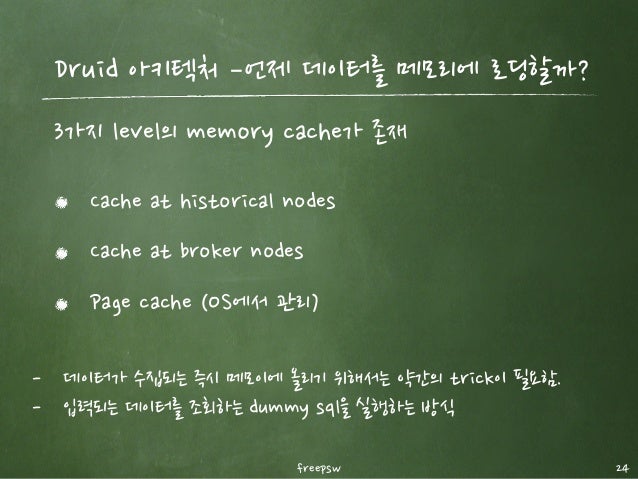 Druid 아키텍처 –언제 데이터를 메모리에 로딩할까?
3가지 level의 memory cache가 존재
cache at historical nodes
cache at broker nodes
Page cache (OS에서 관리)
- 데이터가 수집되는 즉시 메모이에 올리기 위해서는 약간의 trick이 필요함.
- 입력되는 데이터를 조회하는 dummy sql을 실행하는 방식
freepsw
24